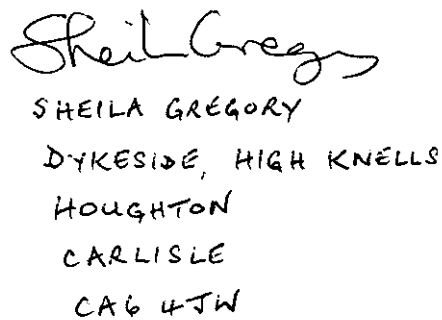 Sheila Gregory
SHEILA GREGORY
DYKESIDE, HIGH KNELLS
HOUGHTON
CARLISLE
CA6 4JW